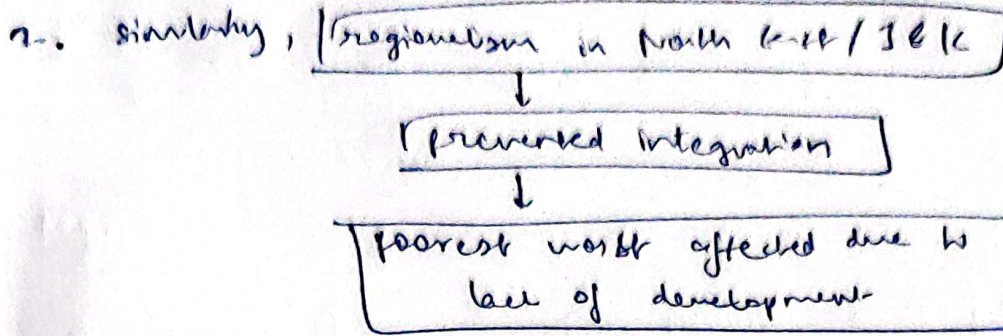 2. similarly, regionalism in North East / J & K
↓
prevented integration
↓
poorest worst affected due to
lack of development